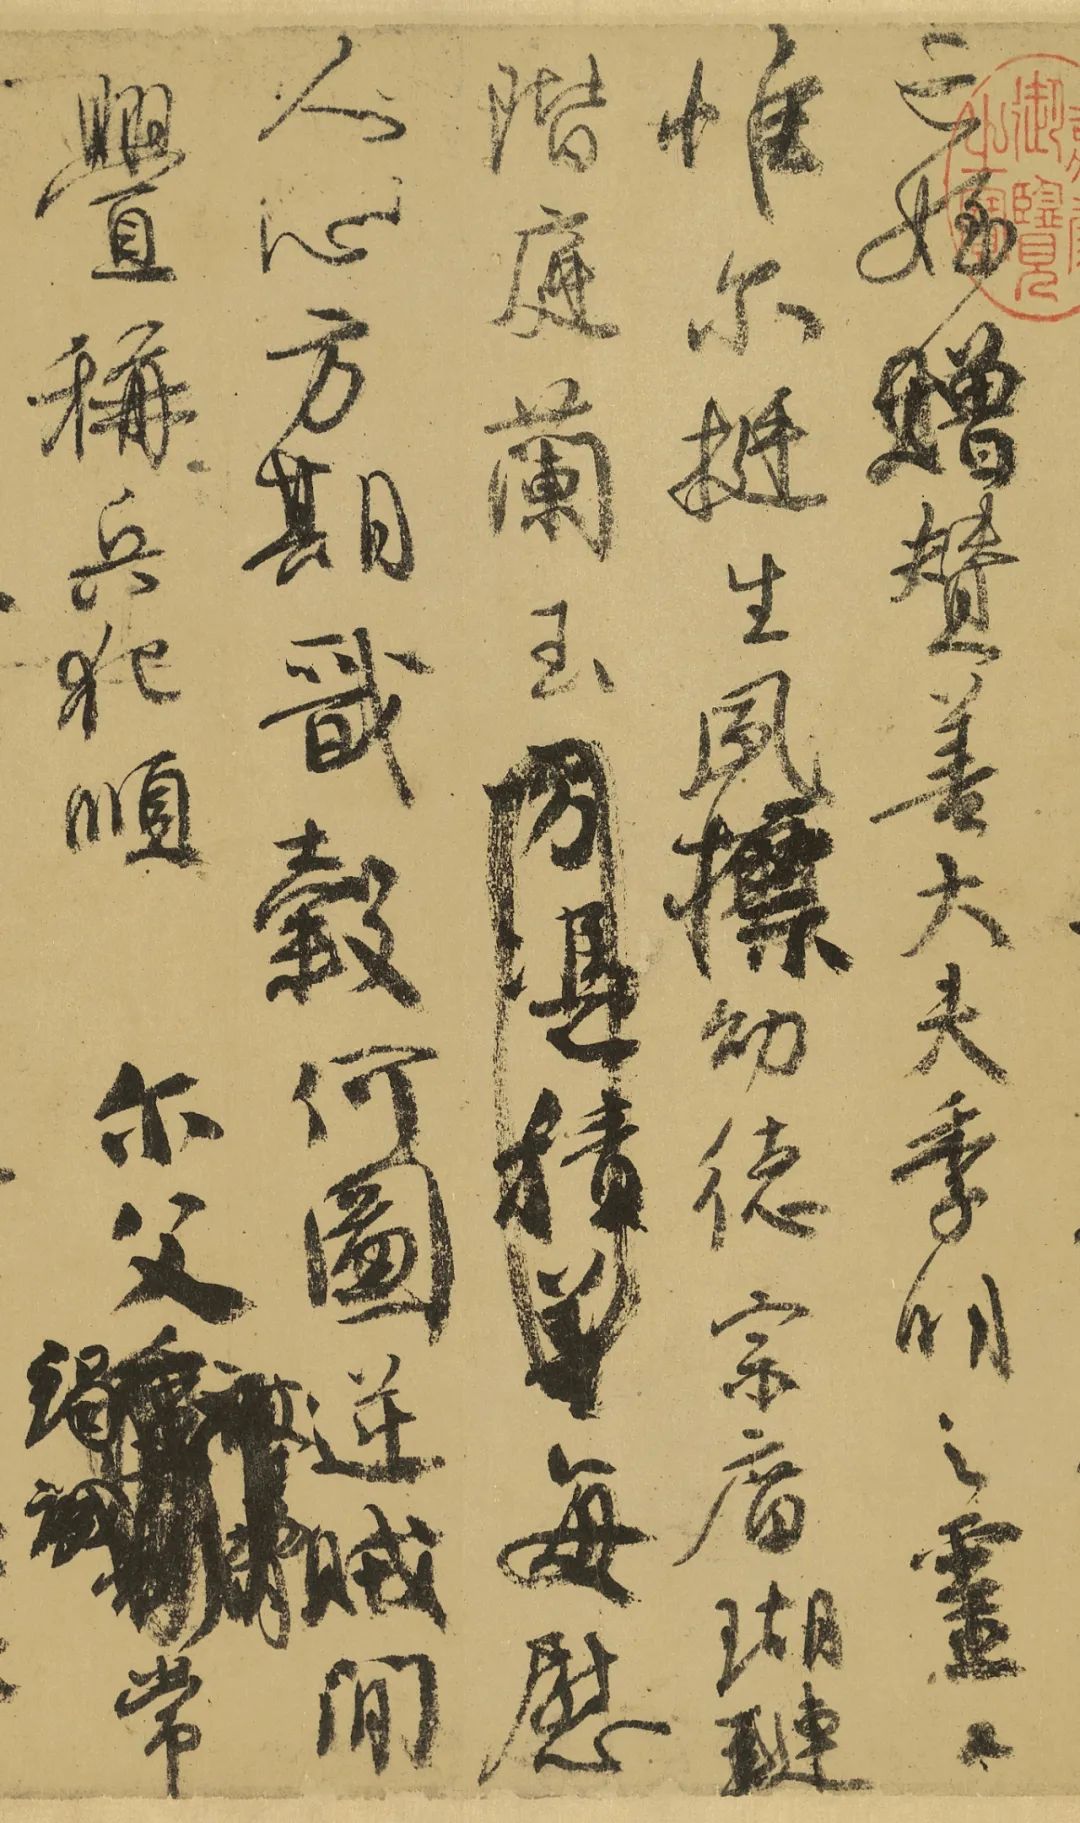 亡姪贈贊善大夫季明之靈曰
惟尔挺生夙標幼德宗廟瑚璉
階庭蘭玉方憑積善每慰
人心方期戩穀何圖逆賊間
舋稱兵犯順 尔父竭誠常
御覽